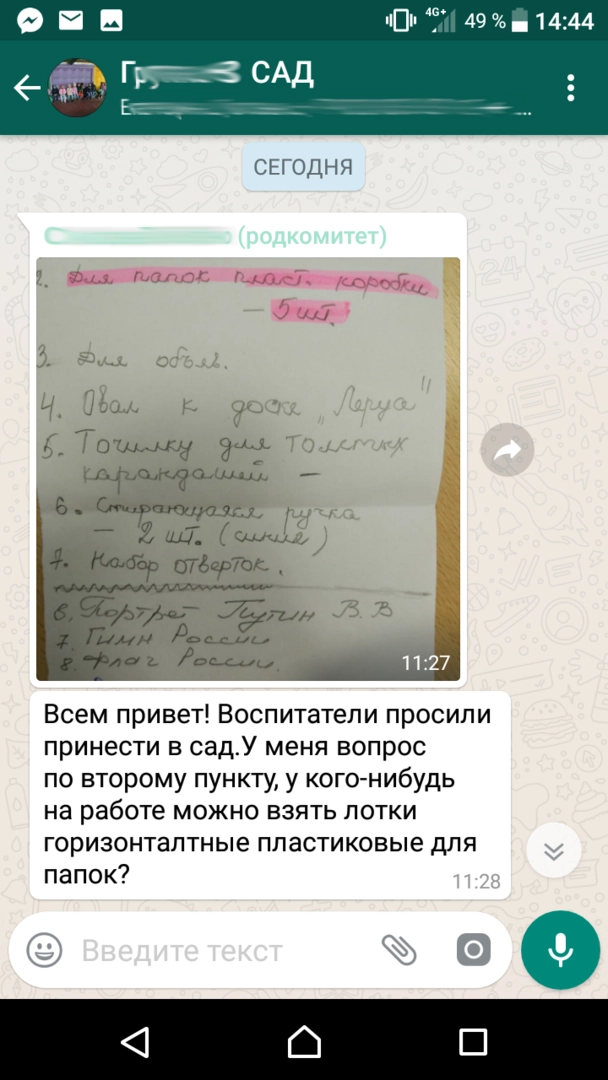 4G+ 49 % 14:44
САД
СЕГОДНЯ
(родкомитет)
2. Для папок пласт. коробки
– 5 шт.
3. Для объяв.
4. Овал к доске „Леруа"
5. Точилку для толстых
карандашей –
6. Стирающаяся ручка
– 2 шт. (синие)
7. Набор отверток.
6. Портрет Путин В.В
7. Гимн России
8. Флаг России.
11:27
Всем привет! Воспитатели просили
принести в сад.У меня вопрос
по второму пункту, у кого-нибудь
на работе можно взять лотки
горизонталтные пластиковые для
папок?
11:28
Введите текст